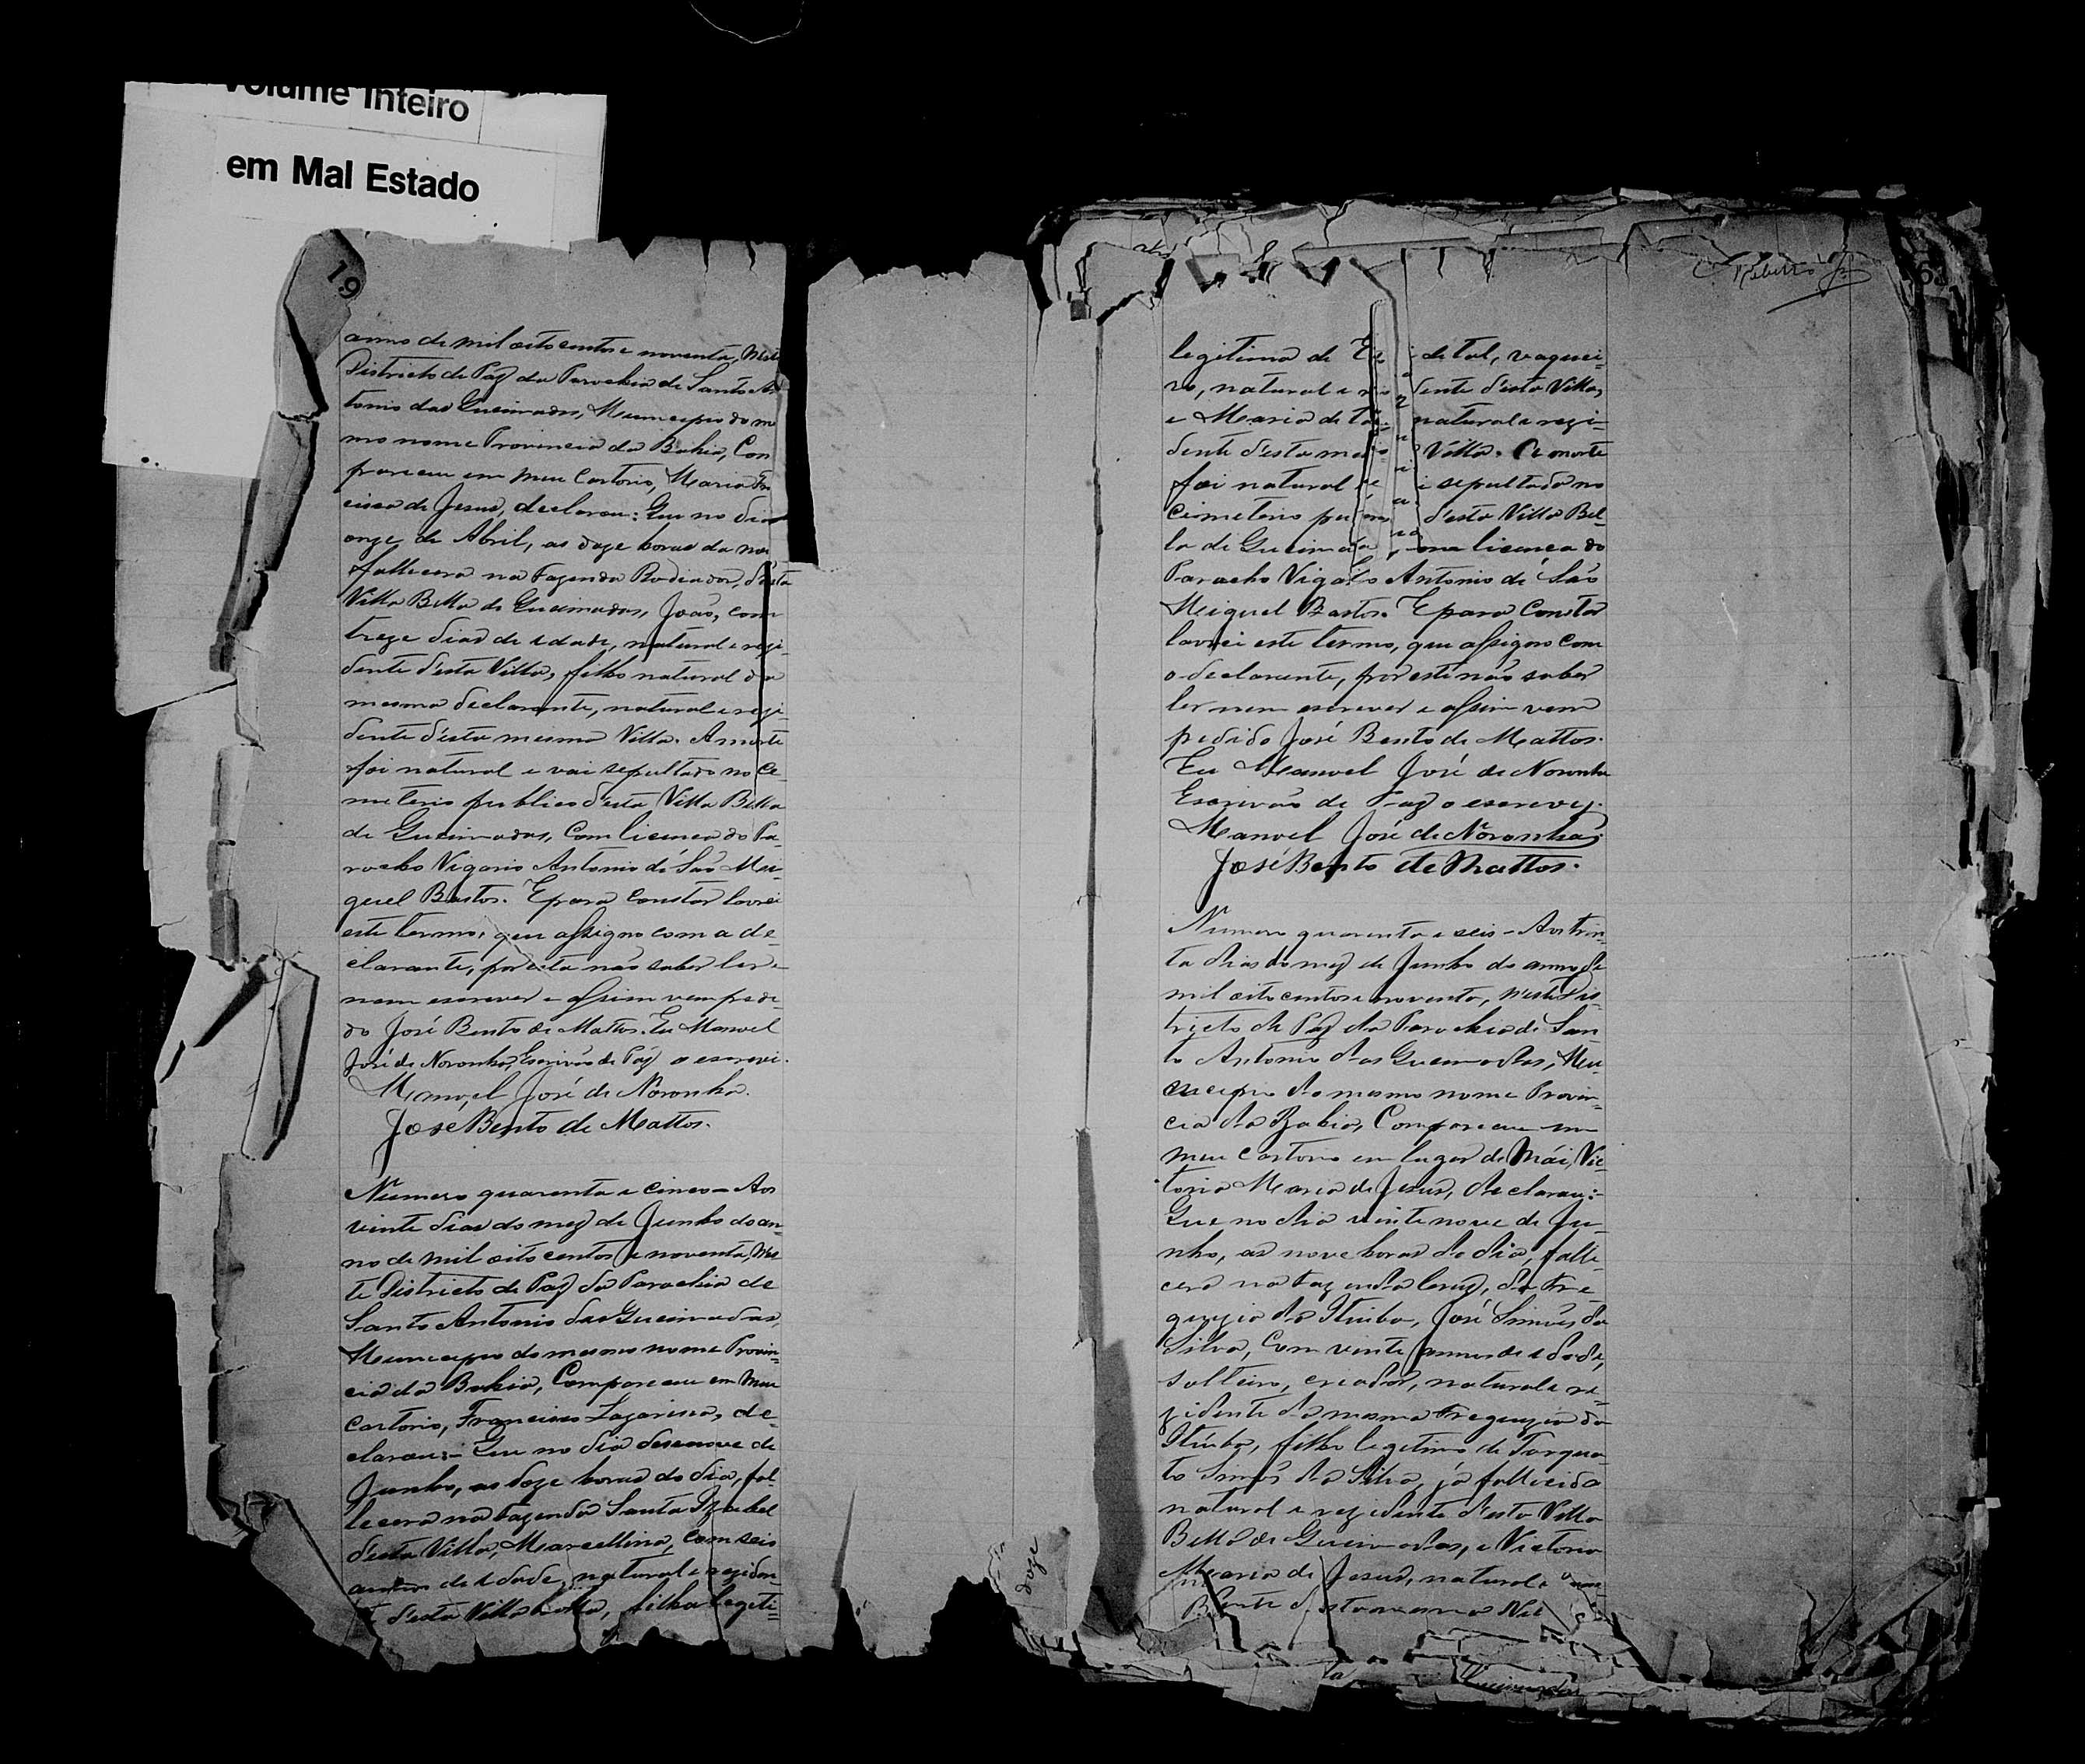 Volume Inteiro
em Mal Estado
19
anno de mil oito centos e noventa, Nest
Districto de Páz da Parochia de Santo An
tonio das Queimadas, Municipio do m
mo nome Provincia da Bahia, Com
pareceu em meu Cartorio, Maria Fr
cisca de Jesus, declarou: Que no dia
onze de Abril, as doze horas da noi
fallecera na Fazenda Rodiador, d'esta
Villa Bella de Queimadas, João, com
treze dias de idade, natural e rezi-
dente d'esta Villa, filho natural da
mesma declarante, natural e rezi-
dente d'esta mesma Villa. A morte
foi natural e vai sepultado no Ce-
miterio publico d'esta Villa Bella
de Queimadas, Com licença do Pa-
rocho Vigario Antonio de São Mi-
guel Bastos. E para Constar lavrei
este termo, que assigno com a de-
clarante, por esta não saber ler
nem escrever e assim vem pedi-
do José Bento de Mattos. Eu Manoel
José de Noronha, Escrivão de Páz o escrevi.
Manoel José de Noronha.
José Bento de Mattos.
Numero quarenta e cinco - Aos
vinte dias do mez de Junho do an-
no de mil oito centos e noventa, Nes
te Districto de Paz da Parochia de
Santo Antonio das Queimadas,
Municipio do mesmo nome Provin-
cia da Bahia, Compareceu em meu
Cartorio, Francisco Lazarino, de-
clarou:- Que no dia desenove de
Junho, as doze horas do dia, fal-
lecera na Fazenda Santa Izabel
d'esta Villa, Marcellina, com seis
annos de idade, natural e reziden-
te d'esta Villa Bella, filha legiti-
doze
Rebello Jr
6
legitima de de tal, vaquei-
ro, natural e dente d'esta Villa,
e Maria de tal natural e rezi-
dente d'esta mes Villa. A morte
foi natural e sepultado no
Cemeterio pu d'esta Villa Bel-
la de Queimada, com licença do
Parocho Vigario Antonio de São
Miguel Bastos. E para Constar
lavrei este termo, que assigno com
o declarante, por este não saber
ler nem escrever e assim vem
pedido José Bento de Mattos.
Eu Manoel José de Noronha
Escrivão de Paz o escrevy.
Manoel José de Noronha
José Bento de Mattos.
Numero quarenta e seis - Aos trin-
ta dias do mez de Junho do anno de
mil oito centos e noventa, n'este Dis-
tricto de Paz da Parochia de San-
to Antonio das Queimadas, Mu-
nicipio do mesmo nome Provin-
cia da Bahia, Compareceu em
meu Cartorio em lugar de Mãi, Vic-
toria Maria de Jesus, declarou:-
Que no dia vinte nove de Ju-
nho, as nove horas do dia, falle-
cera na Fazenda Cruz, da Fre-
guezia do Itiuba, José Simões da
Silva, Com vinte annos de idade,
solteiro, creador, natural e re-
zidente da mesma Freguezia do
Itiuba, filho legitimo de Torqua-
to Simões da Silva, já fallecido
natural e rezidente d'esta Villa
Bella de Queimadas, e Victoria
Maria de Jesus, natural e
dente d'esta mesma Vil
la Queimadas